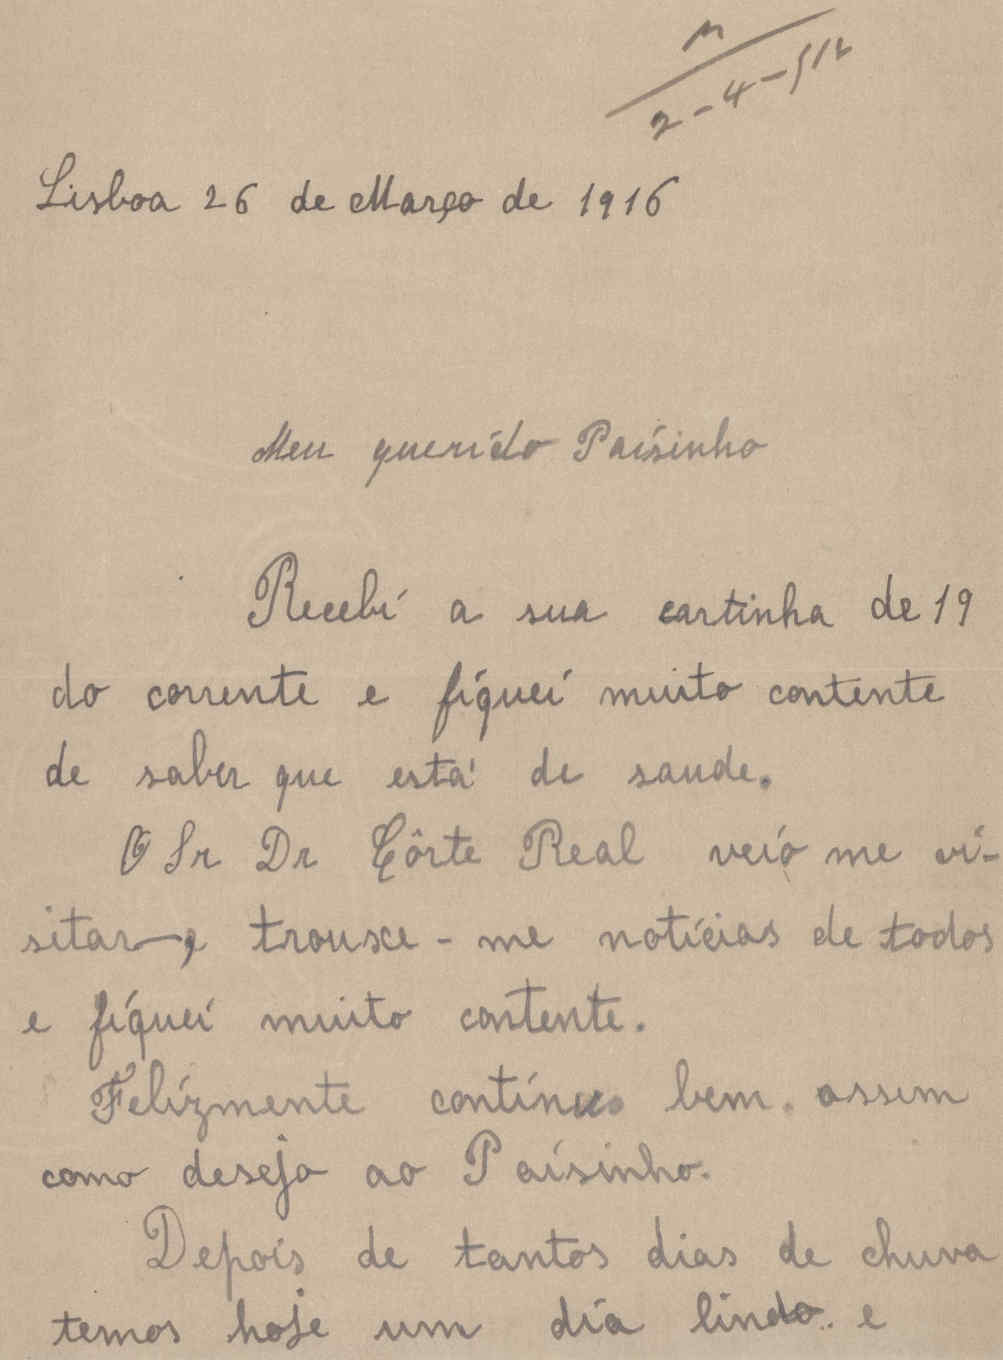 2-4-912
Lisboa 26 de Março de 1916
Meu querido Paisinho
Recebi a sua cartinha de 19
do corrente e fiquei muito contente
de saber que está de saude.
O Sr Dr Côrte Real veio me vi-
sitar e trouxe-me noticias de todos
e fiquei muito contente.
Felizmente continuo bem. assim
como desejo ao Paisinho.
Depois de tantos dias de chuva
temos hoje um dia lindo. e